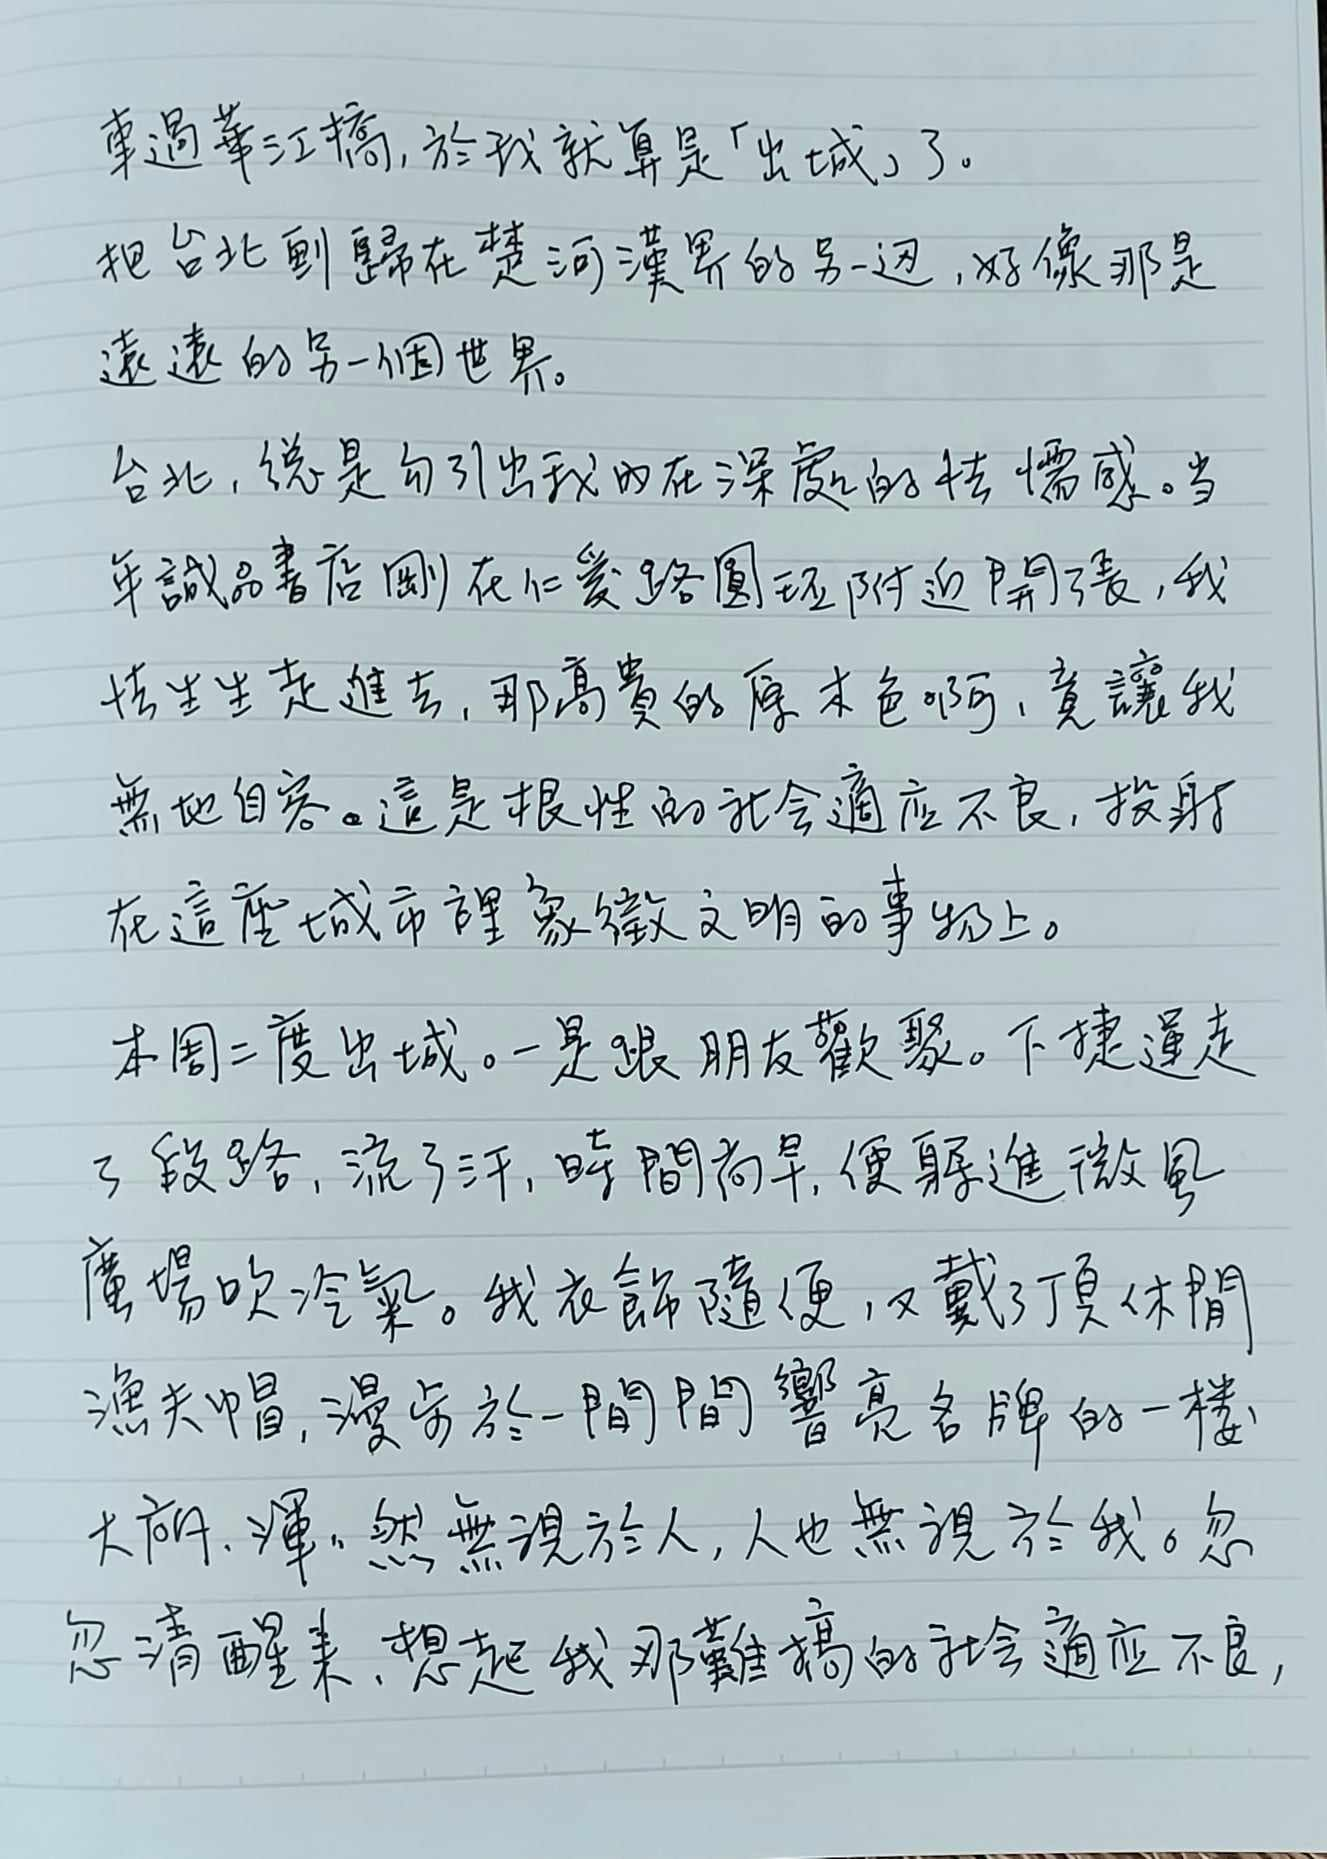 車過華江橋，於我就算是「出城」了。
把台北劃歸在楚河漢界的另一边，好像那是
遠遠的另一個世界。
台北，總是勾引出我內在深處的怯懦感。当
年誠品書店剛在仁愛路圓环附近開張，我
怯生生走進去，那高貴的原木色啊，竟讓我
無地自容。這是根性的社会適应不良，投射
在這座城市裡象徵文明的事物上。
本周二度出城。一是跟朋友歡聚。下捷運走
了段路，流了汗，時間尚早，便躲進微風
廣場吹冷氣。我衣飾隨便，又戴了頂休閒
漁夫帽，漫步於一間間響亮名牌的一楼
大廊、渾然無視於人，人也無視於我。忽
忽清醒来，想起我那難搞的社会適应不良，